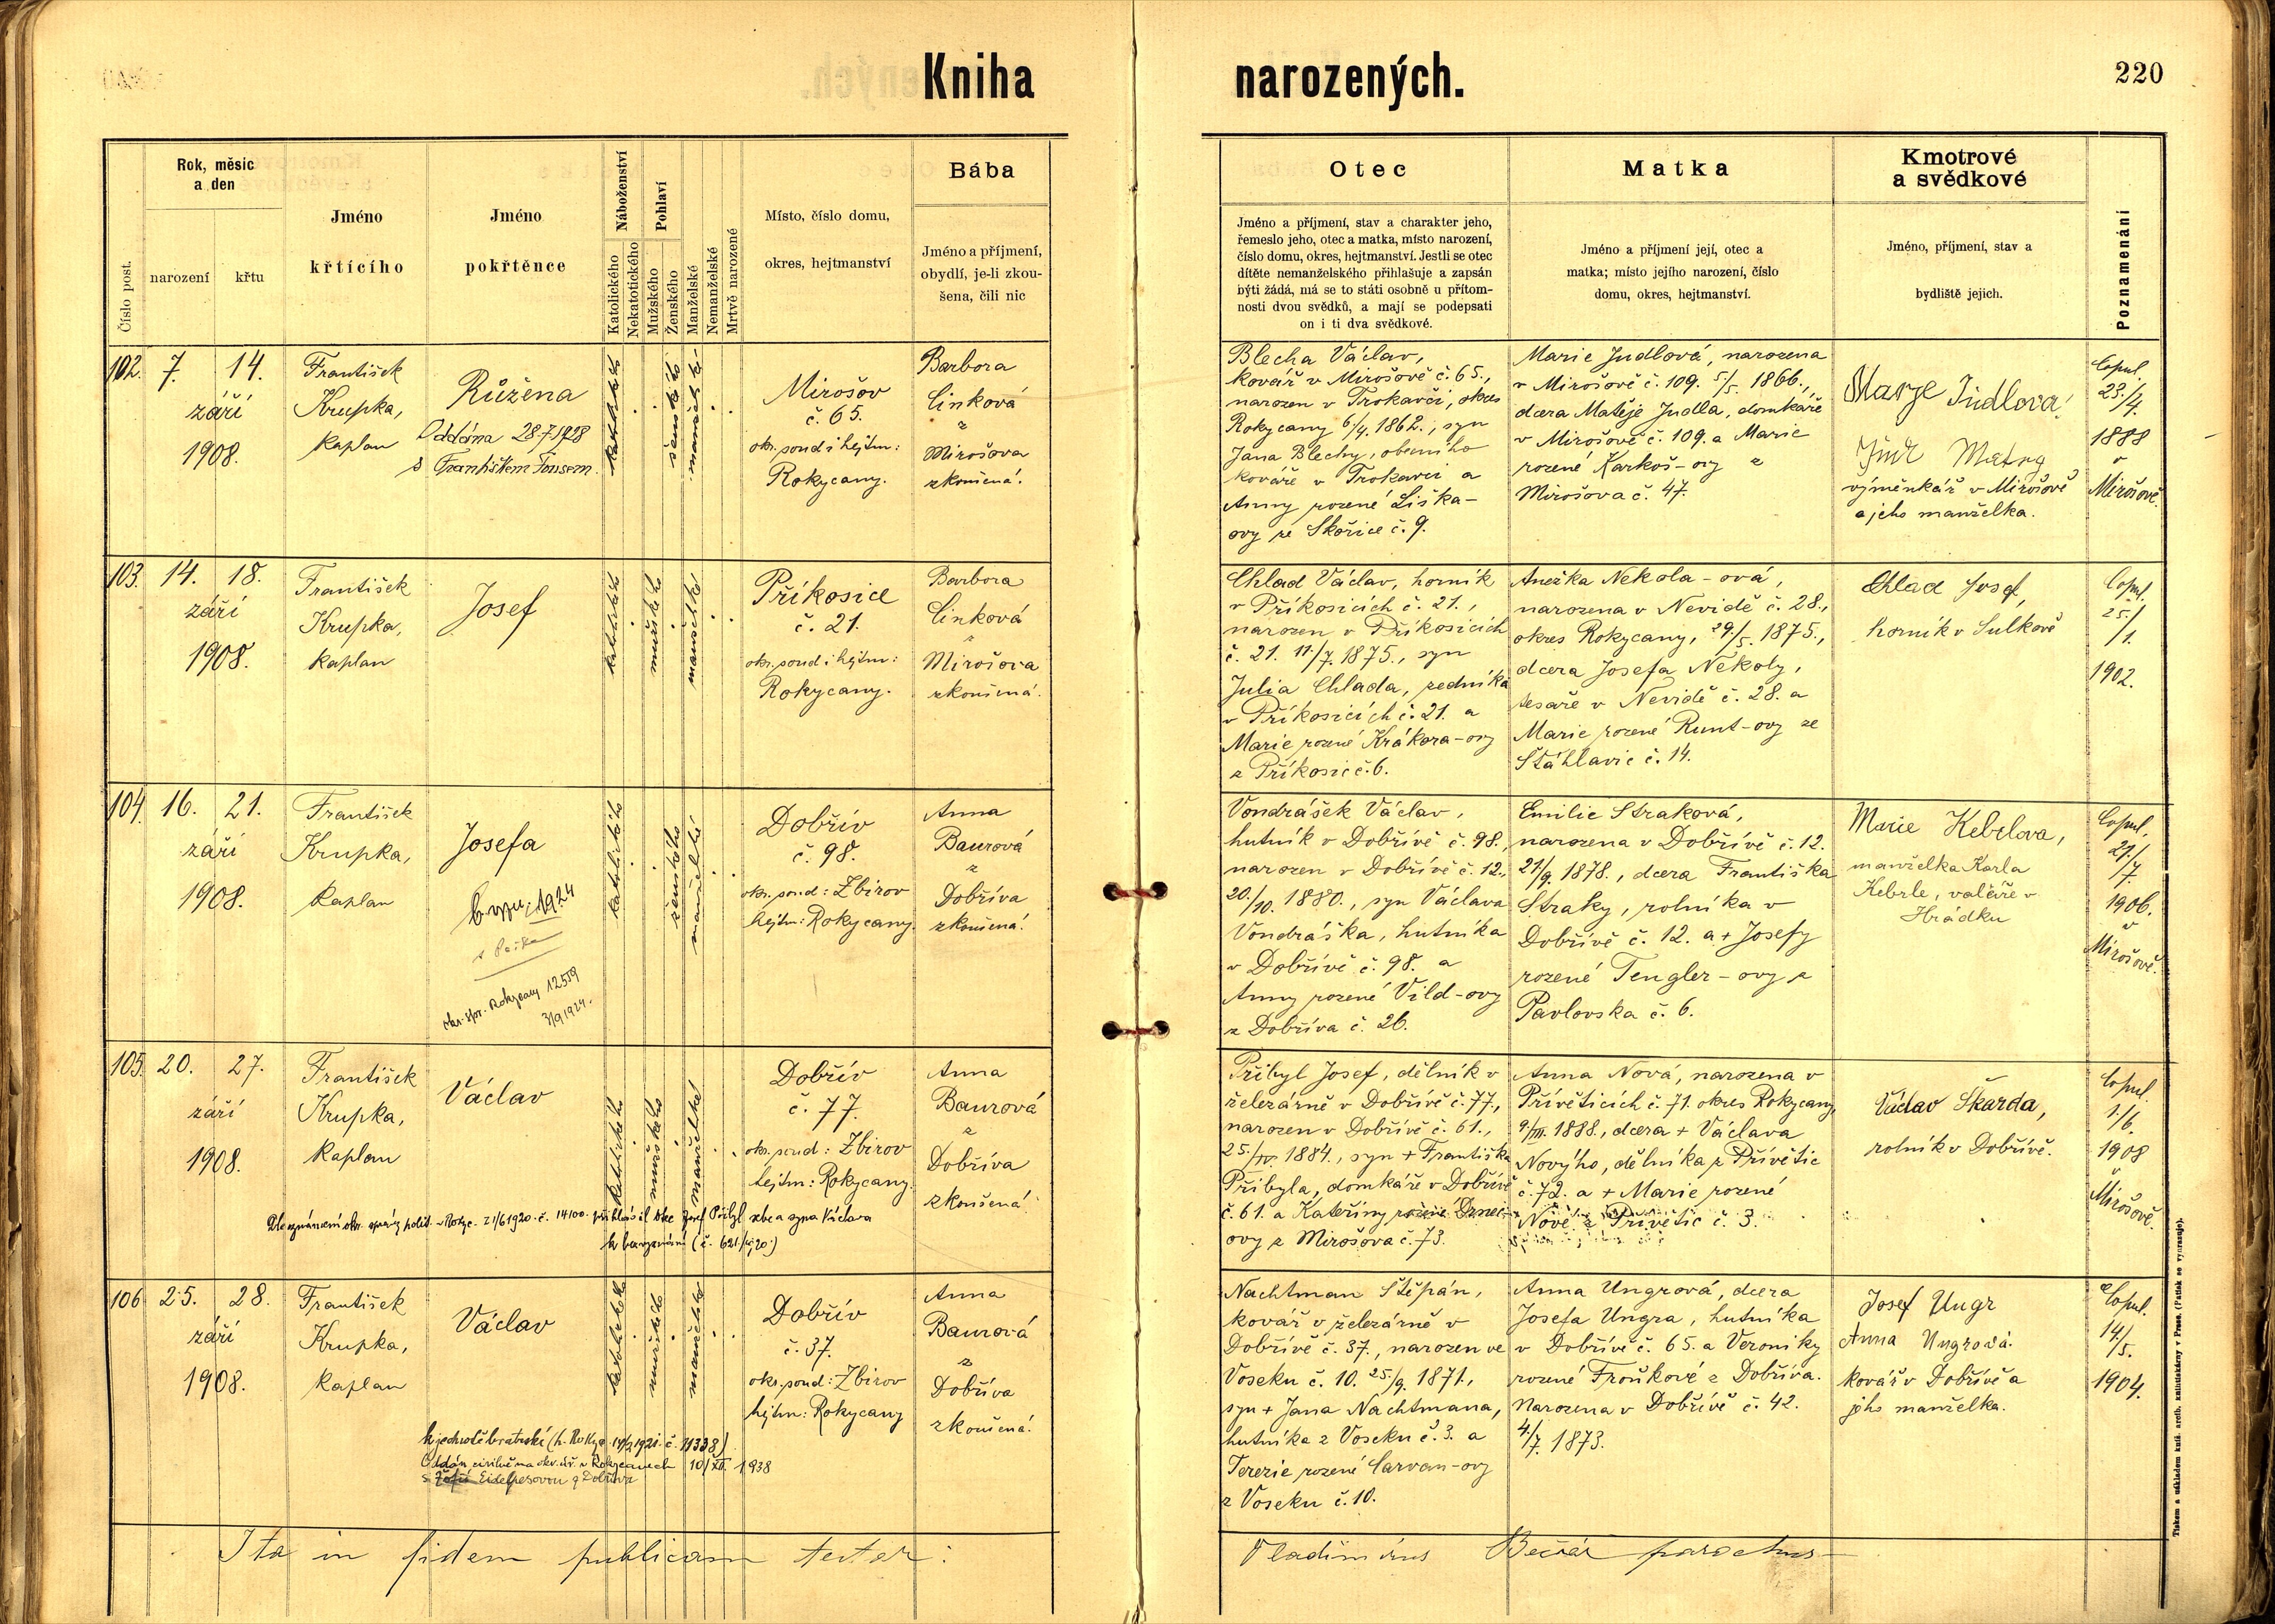 Kniha narozených.
220
Číslo post.
Rok, měsíc
a den
narození
křtu
Jméno
křtícího
Jméno
pokřtěnce
Náboženství
Katolického
Nekatotického
Pohlaví
Mužského
Ženského
Manželské
Nemanželské
Mrtvě narozené
Místo, číslo domu,
okres, hejtmanství
Bába
Jméno a příjmení,
obydlí, je-li zkou-
šena, čili nic
Otec
Jméno a příjmení, stav a charakter jeho,
řemeslo jeho, otec a matka, místo narození,
číslo domu, okres, hejtmanství. Jestli se otec
dítěte nemanželského přihlašuje a zapsán
býti žádá, má se to státi osobně u přítom-
nosti dvou svědků, a mají se podepsati
on i ti dva svědkové.
Matka
Jméno a příjmení její, otec a
matka; místo jejího narození, číslo
domu, okres, hejtmanství.
Kmotrové
a svědkové
Jméno, příjmení, stav a
bydliště jejich.
Poznamenání
102.
7.
14.
září
1908.
František
Krupka,
kaplan
Růžena
Oddána 28.7.1928
s Františkem
katolické
ženské
manželské
Mirošov
č. 65.
okr. soud i hejtm:
Rokycany.
Barbora
Cinková
z
Mirošova
zkoušená.
Blecha Václav,
kovář v Mirošově č. 65.,
narozen v Trokavci, okres
Rokycany 6./4. 1862., syn
Jana Blechy, obecního
kováře v Trokavci a
Anny rozené Liška-
ovy ze Skořice č. 9.
Marie Judlová, narozena
v Mirošově č. 109. 5/5. 1866.,
dcera Matěje Judla, domkáře
v Mirošově č. 109. a Marie
rozené Karkoš-ovy z
Mirošova č. 47.
Marye Judlová
výměnkář v Mirošově
a jeho manželka.
Copul.
23./4.
1888
v
Mirošově.
103.
14.
18.
září
1908.
František
Krupka,
kaplan
Josef
katolické
mužské
manželské
Příkosice
č. 21.
okr. soud i hejtm:
Rokycany.
Barbora
Cinková
z
Mirošova
zkoušená.
Chlad Václav, horník
v Příkosicích č. 21.,
narozen v Příkosicích
č. 21. 11/7. 1875., syn
Julia Chlada, zedníka
v Příkosicích č. 21. a
Marie rozené Krákora-ovy
z Příkosic č. 6.
Anežka Nekola-ová,
narozena v Nevidě č. 28.,
okres Rokycany, 29./5. 1875.,
dcera Josefa Nekoly,
tesaře v Nevidě č. 28. a
Marie rozené Runt-ovy ze
Štáhlavic č. 14.
Chlad Josef,
horník v Sulkově
Copul.
25./1.
1902.
104.
16.
21.
září
1908.
František
Krupka,
kaplan
Josefa
b. vyzn. 1924
okr. spr. Rokycany 12559
3/9 1924.
katolického
ženského
manželské
Dobřív
č. 98.
okr. soud: Zbirov
hejtm: Rokycany.
Anna
Baurová
z
Dobříva
zkoušená.
Vondrášek Václav,
hutník v Dobřívě č. 98.,
narozen v Dobřívě č. 12.,
20./10. 1880., syn Václava
Vondráška, hutníka
v Dobřívě č. 98. a
Anny rozené Vild-ovy
z Dobříva č. 26.
Emilie Straková,
narozena v Dobřívě č. 12.
21/9. 1878., dcera Františka
Straky, rolníka v
Dobřívě č. 12. a + Josefy
rozené Tengler-ovy z
Pavlovska č. 6.
Marie Kebrlova,
manželka Karla
Kebrle, valcíře v
Hrádku
Copul.
21./7.
1906.
v
Mirošově.
105.
20.
27.
září
1908.
František
Krupka,
kaplan
Václav
katolického
mužského
manželské
Dobřív
č. 77.
okr. soud: Zbirov
hejtm: Rokycany.
Anna
Baurová
z
Dobříva
zkoušená.
Dle oznámení okr. správy polit. v Rokyc. z 1/6 1920. č. 14100. přihlásil otec Josef Přibyl sebe a syna Václava
k bezvyznání
Přibyl Josef, dělník v
železárně v Dobřívě č. 77.,
narozen v Dobřívě č. 61.,
25./IV. 1884., syn + Františka
Přibyla, domkáře v Dobřívě
č. 61. a Kateřiny rozené
ovy z Mirošova č. 73.
Anna Nová, narozena v
Přívěticích č. 71. okres Rokycany,
9/III. 1888., dcera + Václava
Nového, dělníka z Přívětic
č. 72. a + Marie rozené
Nové z Přívětic č. 3.
Václav Škarda,
rolník v Dobřívě.
Copul.
1./6.
1908
v
Mirošově.
106
25.
28.
září
1908.
František
Krupka,
kaplan
Václav
katolické
mužské
manželské
Dobřív
č. 37.
okr. soud: Zbirov
hejtm: Rokycany
Anna
Baurová
z
Dobříva
zkoušená.
k jednotě bratrské
Oddán civilně na okr. úř. v Rokycanech 10/XII. 1938
Nachtman Štěpán,
kovář v železárně v
Dobřívě č. 37., narozen ve
Voseku č. 10. 25./9. 1871.,
syn + Jana Nachtmana,
hutníka z Voseku č. 3. a
Terezie rozené Carvan-ovy
z Voseku č. 10.
Anna Ungrová, dcera
Josefa Ungra, hutníka
v Dobřívě č. 65. a Veroniky
rozené Froňkové z Dobříva.
Narozena v Dobřívě č. 42.
4./7. 1873.
Josef Ungr
Anna Ungrová.
kovář v Dobřívě a
jeho manželka.
Copul.
14./5.
1904.
Ita in fidem publicam testor:
Vladimírus Bečvář parochus
Tiskem a nákladem kníž. arcib. knihtiskárny v Praze. (Patisk se vyhrazuje).